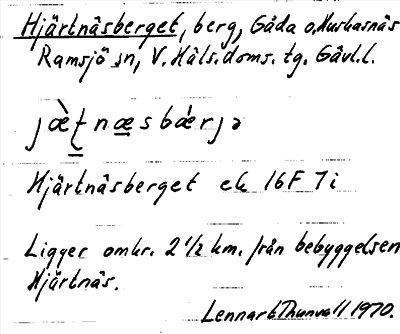 Hjärtnäsberget, berg, Gåda o. Huskasnäs
Ramsjö sn, V. Häls. doms. tg. Gävl. l.
jæ̀t̠n æ̠s bǽrjə
Hjärtnäsberget ek 16F 7i
Ligger omkr. 2 1/2 km. från bebyggelsen
Hjärtnäs.
Lennart Thunvall 1970.